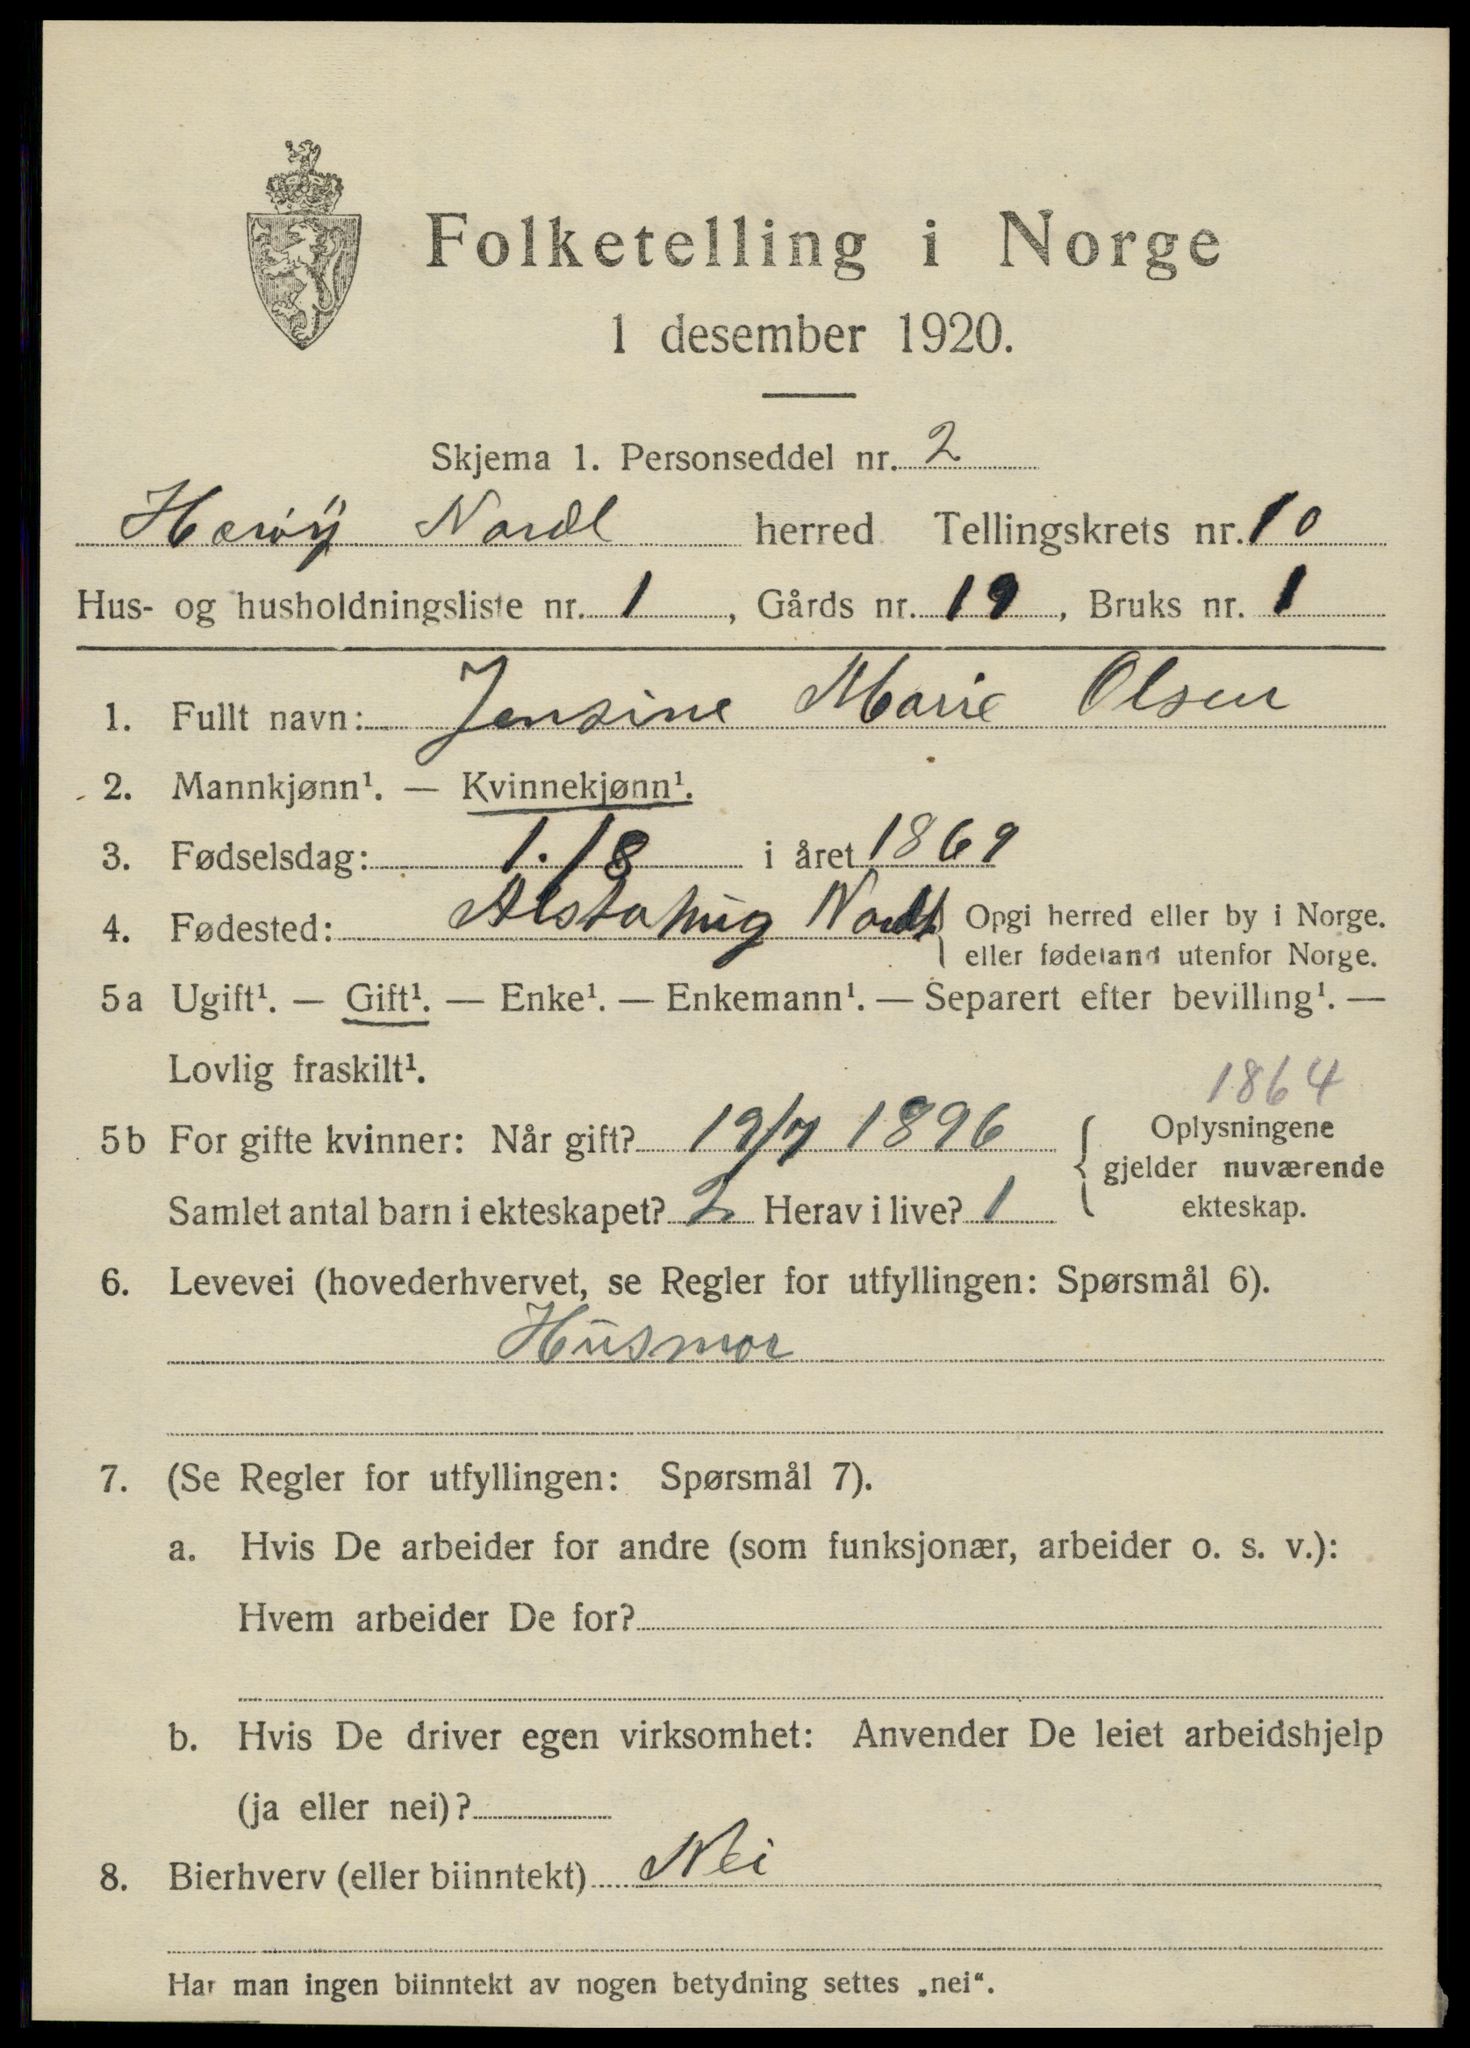 Folketelling i Norge
1 desember 1920.
Skjema 1. Personseddel nr. 2
Herøy Nordl herred Tellingskrets nr. 10
Hus- og husholdningsliste nr. 1, Gårds nr. 19, Bruks nr. 1
1. Fullt navn: Jensine Marie Olsen
2. Mannkjønn¹. — Kvinnekjønn¹.
3. Fødselsdag: 1./8 i året 1869
4. Fødested: Alstahug Nordl { Opgi herred eller by i Norge.
eller fødeland utenfor Norge.
5a Ugift¹. — Gift¹. — Enke¹. — Enkemann¹. — Separert efter bevilling¹. —
Lovlig fraskilt¹.
1864
5b For gifte kvinner: Når gift? 19/7 1896 { Oplysningene
gjelder nuværende
Samlet antal barn i ekteskapet? 2 Herav i live? 1 ekteskap.
6. Levevei (hovederhvervet, se Regler for utfyllingen: Spørsmål 6).
Husmor
7. (Se Regler for utfyllingen: Spørsmål 7).
a. Hvis De arbeider for andre (som funksjonær, arbeider o. s. v.):
Hvem arbeider De for?
b. Hvis De driver egen virksomhet: Anvender De leiet arbeidshjelp
(ja eller nei)?
8. Bierhverv (eller biinntekt) Nei
Har man ingen biinntekt av nogen betydning settes „nei“.